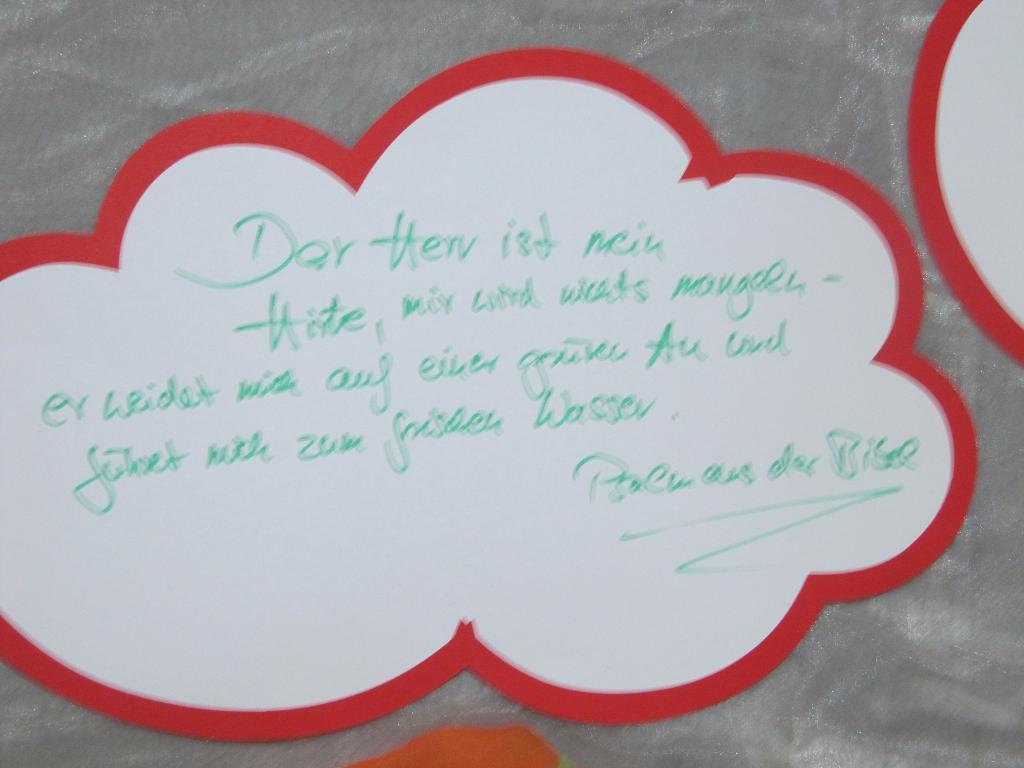 Der Herr ist mein
Hirte, mir wird nichts mangeln -
er weidet mich auf einer grünen Au und
führet mich zum frischen Wasser.
Psalm aus der Bibel